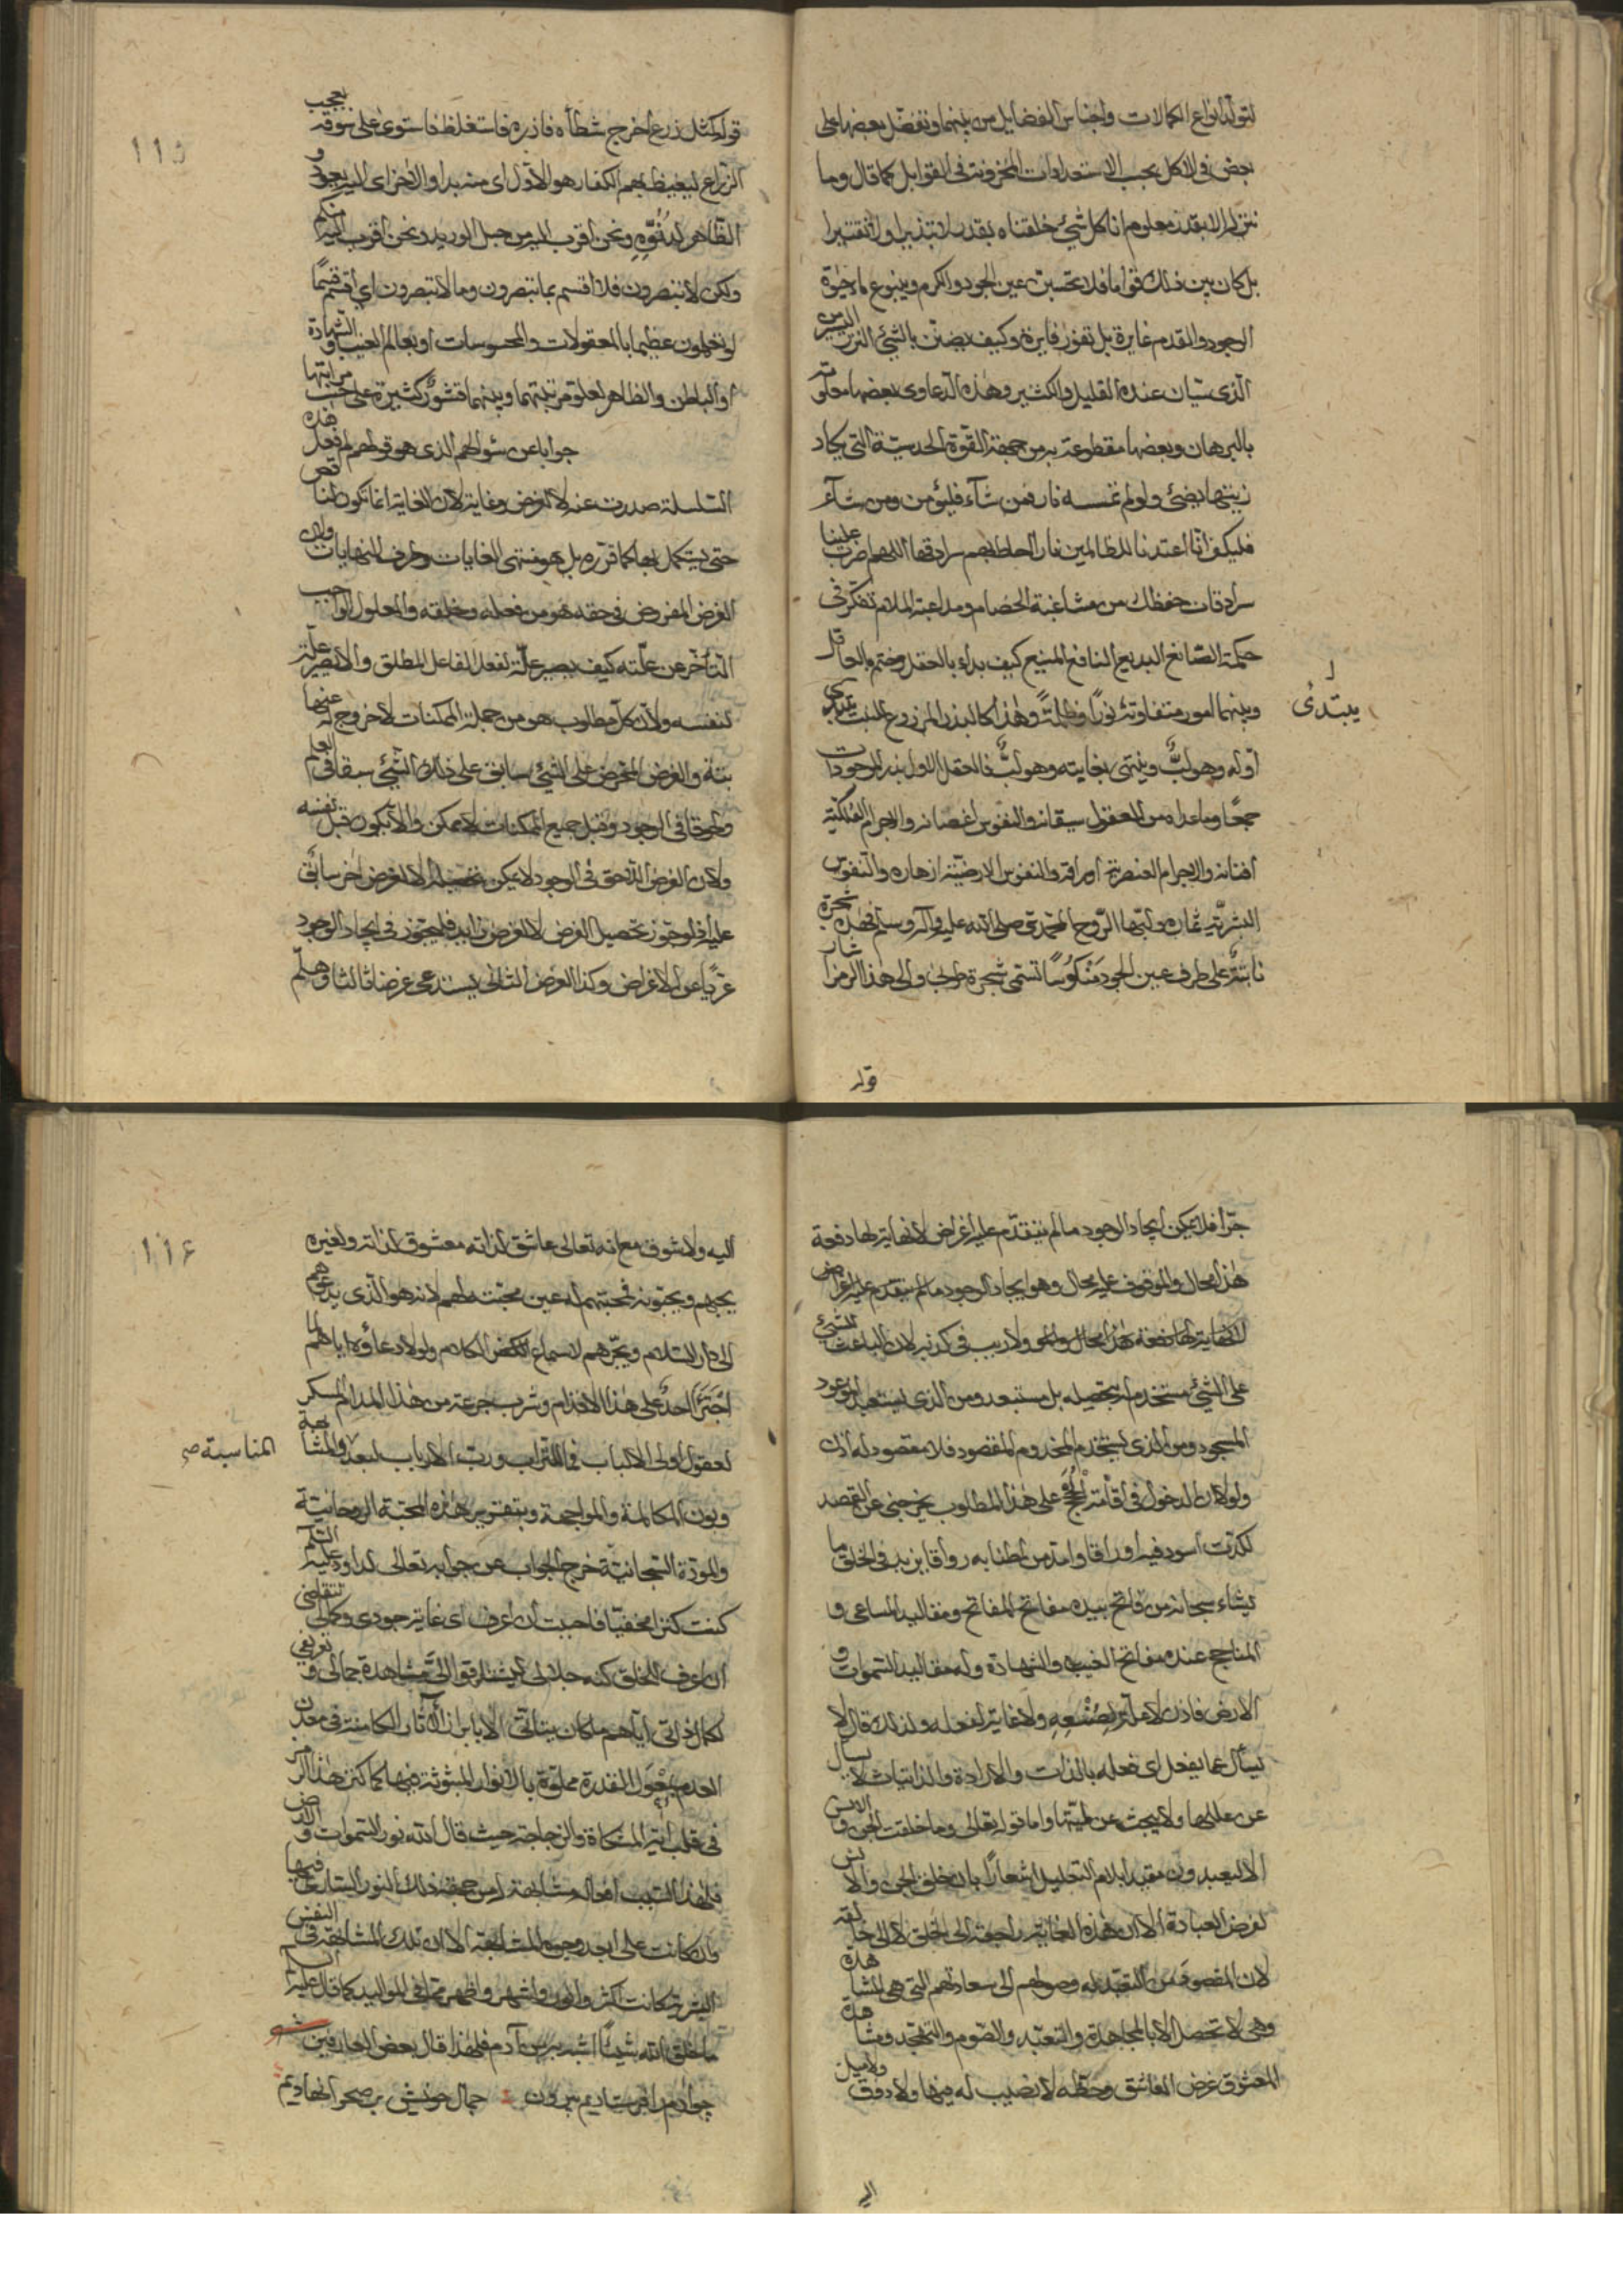 لتولّد انواع الكمالات واجناس الفضايل من بينهما وتفضّل بعضها على
بعض فى الاكل بحسب الاستعدادات المخزونة فى القوابل كما قال وما
ننزله الا بقدر معلوم انا كل شئ خلقناه بقدر لا تبذيرا ولا تقتيرا
بل كان بين ذلك قواما فلا تحسبنّ عين الجود والكرم وينبوع ماء حيوة
الوجود والقدم غايرة بل تفور فايرة وكيف يضنّ بالشئ النزر اليسير من
الذى سيّان عنده القليل والكثير وهذه الدعاوى بعضها معلومة
بالبرهان وبعضها مقطوعة به من جهة القوّة الحدسيّة التى يكاد
زيتها يضئ ولو لم تمسسه نار فمن شآء فليؤمن ومن شآء
فليكفر انّا اعتدنا للظالمين نارا احاط بهم سرادقها اللهم اضرب علينا
سرادقات حفظك من مشاغبة الخصام ومداعبة الملام تفكّر فى
حكمة الصّانع البديع النافع المنيع كيف بداء بالعقل وختم بالعاقل
وبينهما امور متفاوتة نورًا وظلمةً وهذا كالبذر المزروع للنبت يبتدى
يبتدئ
اوله وهو لبٌّ وينتهى بغايته وهو لبٌّ فالعقل الاول بذر الموجودات
جمعًا وما عداه من العقول سيقانه والنفوس اغصانه والاجرام الفلكيّة
افنانه والاجرام العنصرية اوراقه والنفوس الارضيّة ازهاره والنفوس
البشريّة ثماره ولبّها الرّوح المحمدى صلى الله عليه وآله وسلم فهذه شجرة
نابتةٌ على طرف عين الجود مَنكوُسًا تسمّى شجرة طوبى والى هذا الرمز اشار
قوله
١١٥
قوله كمثل زرع اخرج شطأه فازره فاستغلظ فاستوى على سوقه يعجب
الزرّاع ليغيظ بهم الكفار هو الاوّل اى منه بدا والاخر اى اليه يعود و
الظّاهر لدنوّه ونحن اقرب اليه من حبل الوريد ونحن اقرب اليه منكم
ولكن لا تبصرون فلا اقسم بما تبصرون وما لا تبصرون اى اقسم قسمًا
لو تعلمون عظيما بالمعقولات والمحسوسات او بعالم الغيب والشهادة
او الباطن والظاهر لعلوّ مرتبتهما وبينهما قشور كثيرة على حسب مراتبها
جوابا عن سؤالهم الذى هو قولهم لم فعل هذه
السلسلة صدرت عنه لا لغرض وغاية لان الغاية انما تكون لناقص
حتى يستكمل بها كما قرّره بل هو منتهى الغايات وطرف النهايات ولان
الغرض المفروض فى حقه هو من فعله وخلقه والمعلول الواجب
التأخّر عن علّته كيف يصير علّة لفعل الفاعل المطلق والا يصير علّة
لنفسه ولان كلّ مطلوب هو من جملة الممكنات لا خروج له عنها
بتّة والغرض المحرّض على الشئ سابق على ذلك الشئ سبقا فى العلم
ولحوقا فى الوجود وقبل جميع الممكنات لا ممكن والا يكون قبل نفسه
ولان الغرض اللاحق فى الوجود لا يمكن تحصيله الا لغرض اخر سابق
عليه اذ لو جوّز تحصيل الغرض لا لغرض زايد فليجوّز فى ايجاد الوجود
عريًا عن الاغراض وكذا الغرض الثانى يستدعى غرضا ثالثا وهلمّ
جرّا فلا يمكن ايجاد الوجود ما لم يتقدّم عليه اغراض لا نهاية لها دفعة
هذا محال والموقوف عليه محال وهو ايجاد الوجود ما لم يتقدم عليه اغراض
لا نهاية لها دفعة هذا محال ولا ريب فى كونه لان الباعث للشئ
على الشئ مستخدم له بتحصيله بل مستعبد ومن الذى يستعبد الموعود
المسجود ومن الذى يستخدم المخدوم المقصود فلا مقصود له اذن
ولولا ان الدخول فى اقامة الحُجَج على هذا المطلوب يخرجنى عن القصد
لكدت اسود فيه اوراقا وامدّ من اطنابه رواقا يزيد فى الخلق ما
يشاء سبحانه من فاتح بيده مفاتح المفاتح ومقاليد المساعى و
المناجح عنده مفاتح الغيب والشهادة وله مقاليد السموات و
الارض فاذن لا علّة لِصُنْعِهِ ولا غاية لفعله ولذلك قال لا
يسأل عما يفعل اى فعله بالذات والارادة والذاتيات لا يسأل
عن عللها ولا يبحث عن لميّتها واما قوله تعالى وما خلقت الجن والانس
الا ليعبدون مقيدا بلام التعليل اشعارًا بان خلق الجن والانس
لغرض العبادة الا ان هذه الغاية راجعة الى الخلق لا الى خالقه
لان المقصود من التعبّد له وصولهم الى سعادتهم التى هى المشاهدة
وهى لا تحصل الا بالمجاهدة والتعبّد والصّوم والتهجّد ومشاهدة
المعشوق غرض العاشق وحظّه لا نصيب له فيها ولا ذوق ولا ميل
اليه
١١٦
اليه ولا شوق مع انه تعالى عاشق لذاته معشوق لذاته ولغيره
يحبهم ويحبّونه فمحبتهم له عين محبّته لهم لانه هو الّذى يدعوهم
الى دار السّلام ويجرّهم لاسماع الكلام ولولا دعاؤه اياهم لما
اجترَأَ احدٌ على هذا الاقدام وشرب جرعة من هذا المدام المسكر
لعقول اولى الالباب فما للتراب وربّ الارباب لبعد المشابهة
المناسبة صح
وبون المكالمة والمواجهة وبتقرير هذه المحبّة الروحانيّة
والمودّة السّبحانيّة خرج الجواب عن جوابه تعالى لداود عليه السّلم
كنت كنزا مخفيّا فاحببت ان اعرف اى غاية جودى وكمالى تتقاضى
ان اعرف الخلق كنه جلالى ليشتاقوا الى مشاهدة جمالى و تعريفى
لكمال ذاتى اياهم ما كان يتأتى الا بابراز الآثار الكامنة فى معدن
العدم بمِعْوَل القدرة مملوّة بالانوار المبثوثة فيها كما كنز هذا الرمز
فى قلب آية المشكاة والزجاجة حيث قال الله نور السّموات والارض
فلهذا السبب افعاله مشابهة له من جهة ذلك النور السارى فيها
وان كانت على ابعد وجوه المشابهة الا ان تلك المشابهة فى النفس
البشرية كانت اكثر وانور واشهر واظهر ممّا فى المواليد كما قال عليه السلم
ما خلق الله شيئًا اشبه به من آدم فلهذا قال بعض العارفين شعر
چو آدم را فرستاديم بيرون جمال خويش بر صحرا نهاديم